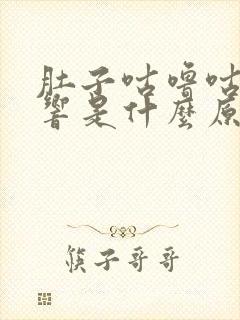 肚子咕噜咕
響是什麼原
筷子哥哥